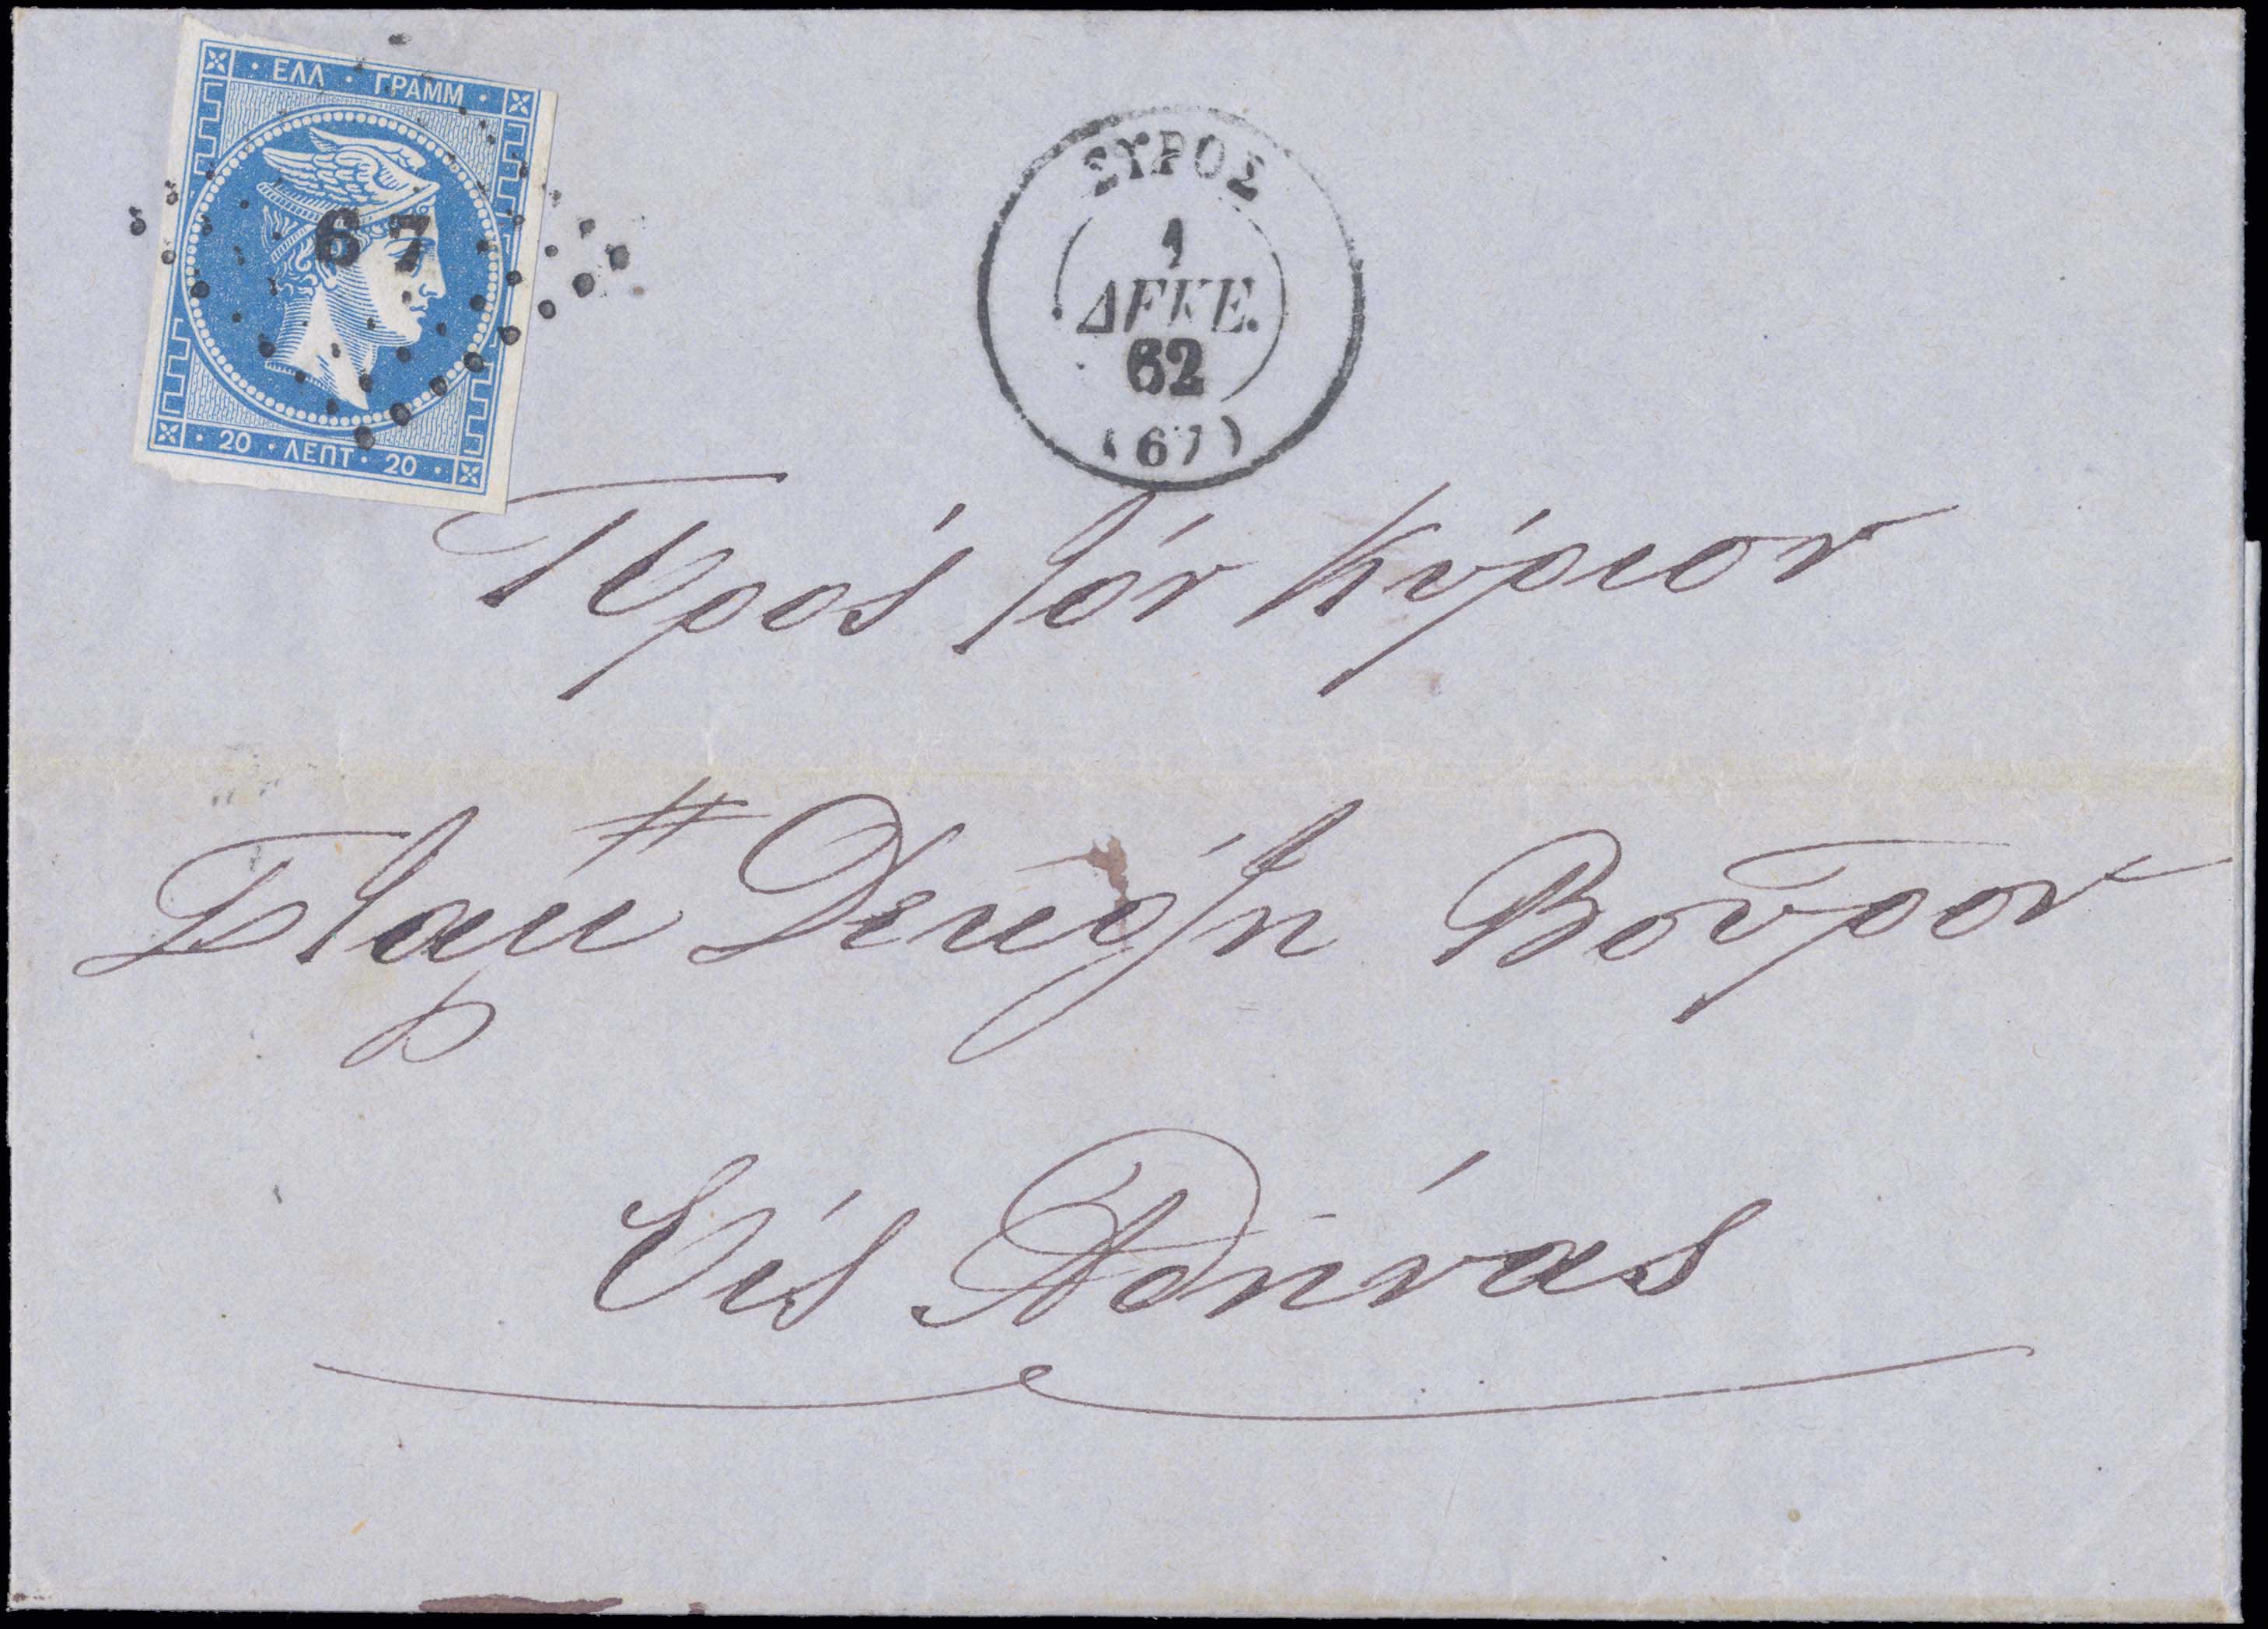 · ΕΛΛ · ΓΡΑΜΜ ·
67
· 20 · ΛΕΠΤ · 20 ·
ΣΥΡΟΣ
1
ΔΕΚΕ.
62
(67)
Πρὸς τὸν Κύριον
Σταμ Δεκόζη Βοῦρον
Εἰς Ἀθήνας